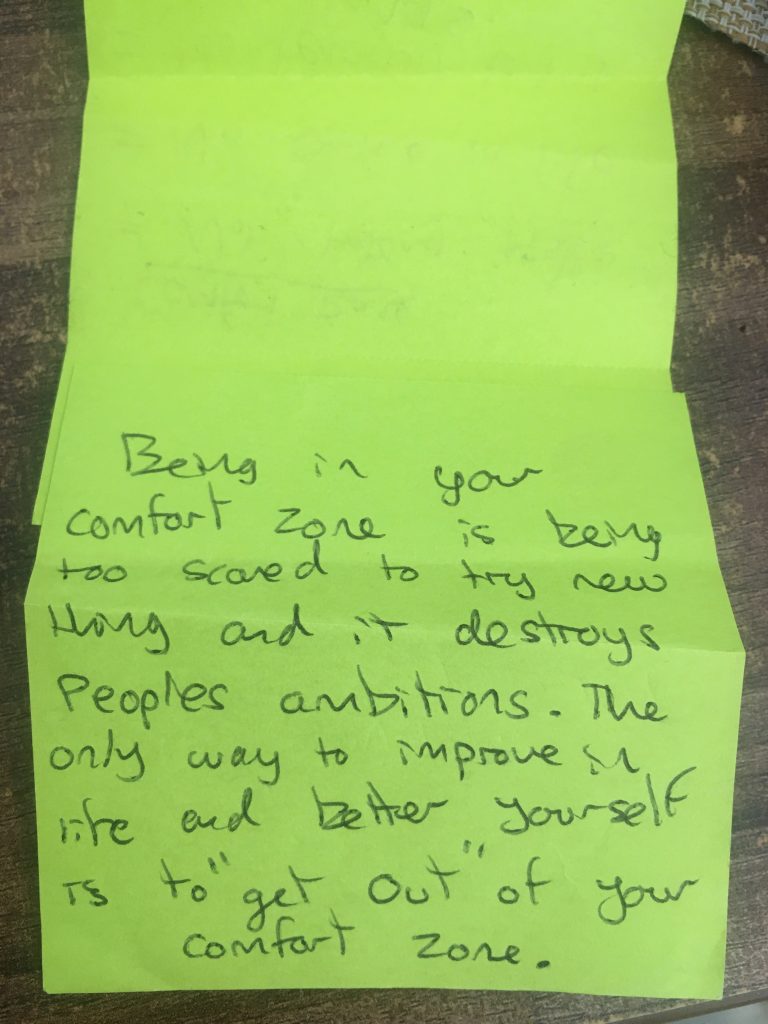 Being in your
comfort zone is being
too scared to try new
thing and it destroys
Peoples ambitions. The
only way to improve in
life and better yourself
is to "get out" of your
comfort zone.